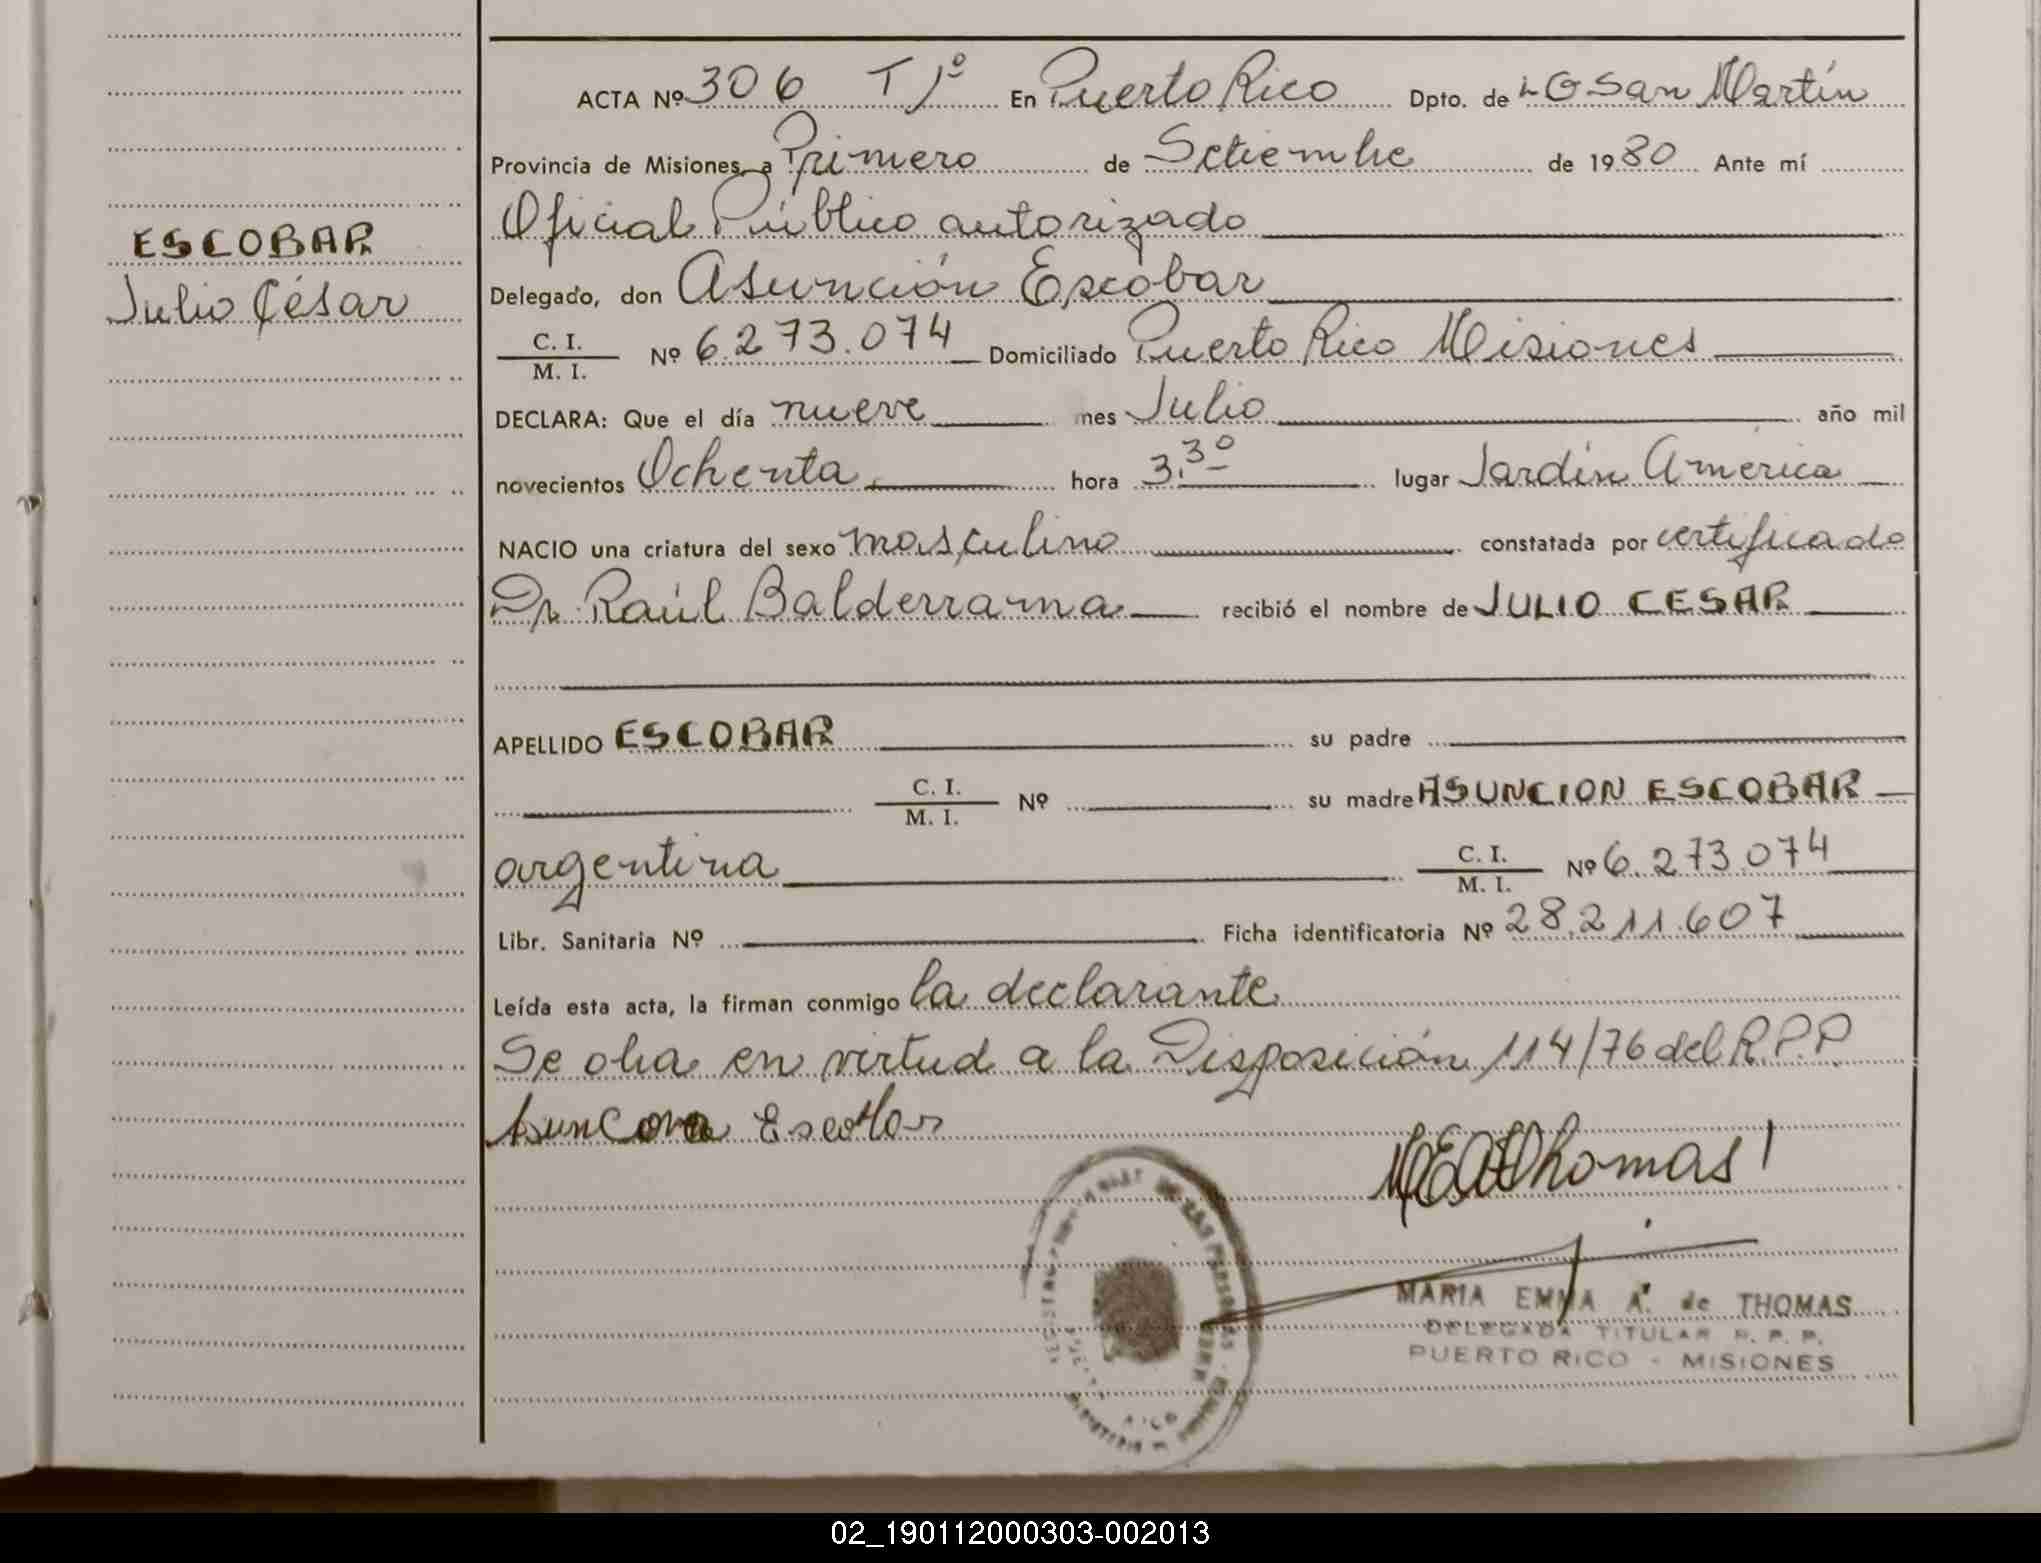 ACTA Nº 306 Tº 1º En Puerto Rico Dpto. de LG San Martín
Provincia de Misiones, a Primero de Setiembre de 1980 Ante mí
Oficial Público autorizado
ESCOBAR
Julio César
Delegado, don Asunción Escobar
C. I.
M. I.
Nº 6.273.074 Domiciliado Puerto Rico Misiones
DECLARA: Que el día nueve mes Julio año mil
novecientos Ochenta hora 3.30 lugar Jardín América
NACIO una criatura del sexo masculino constatada por certificado
Dr. Raúl Balderrama recibió el nombre de JULIO CESAR
APELLIDO ESCOBAR su padre
C. I.
M. I.
Nº su madre ASUNCION ESCOBAR
argentina
C. I.
M. I.
Nº 6.273.074
Libr. Sanitaria Nº Ficha identificatoria Nº 28.211.607
Leída esta acta, la firman conmigo la declarante
Se oha en virtud a la Disposición 114/76 del R.P.P.
Escobar
MEAdThomas
MARIA EMMA A. de THOMAS
DELEGADA TITULAR R. P. P.
PUERTO RICO - MISIONES
02_190112000303-002013